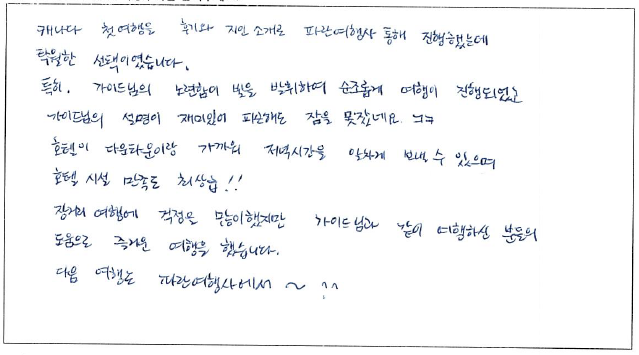 캐나다 첫여행을 후기와 지인 소개로 파란여행사 통해 진행했는데
탁월한 선택이였습니다.
특히, 가이드님의 노련함이 빛을 발휘하여 순조롭게 여행이 진행되었고
가이드님의 설명이 재미있어 피곤해도 잠을 못잤네요 ㅋㅋ
호텔이 다운타운이랑 가까워 저녁시간을 알차게 보낼 수 있으며
호텔 시설 만족도 최상급!!
장거리 여행에 걱정은 많이했지만 가이드님과 같이 여행하신 분들의
도움으로 즐거운 여행을 했습니다.
다음 여행도 파란여행사에서 ~ ^^